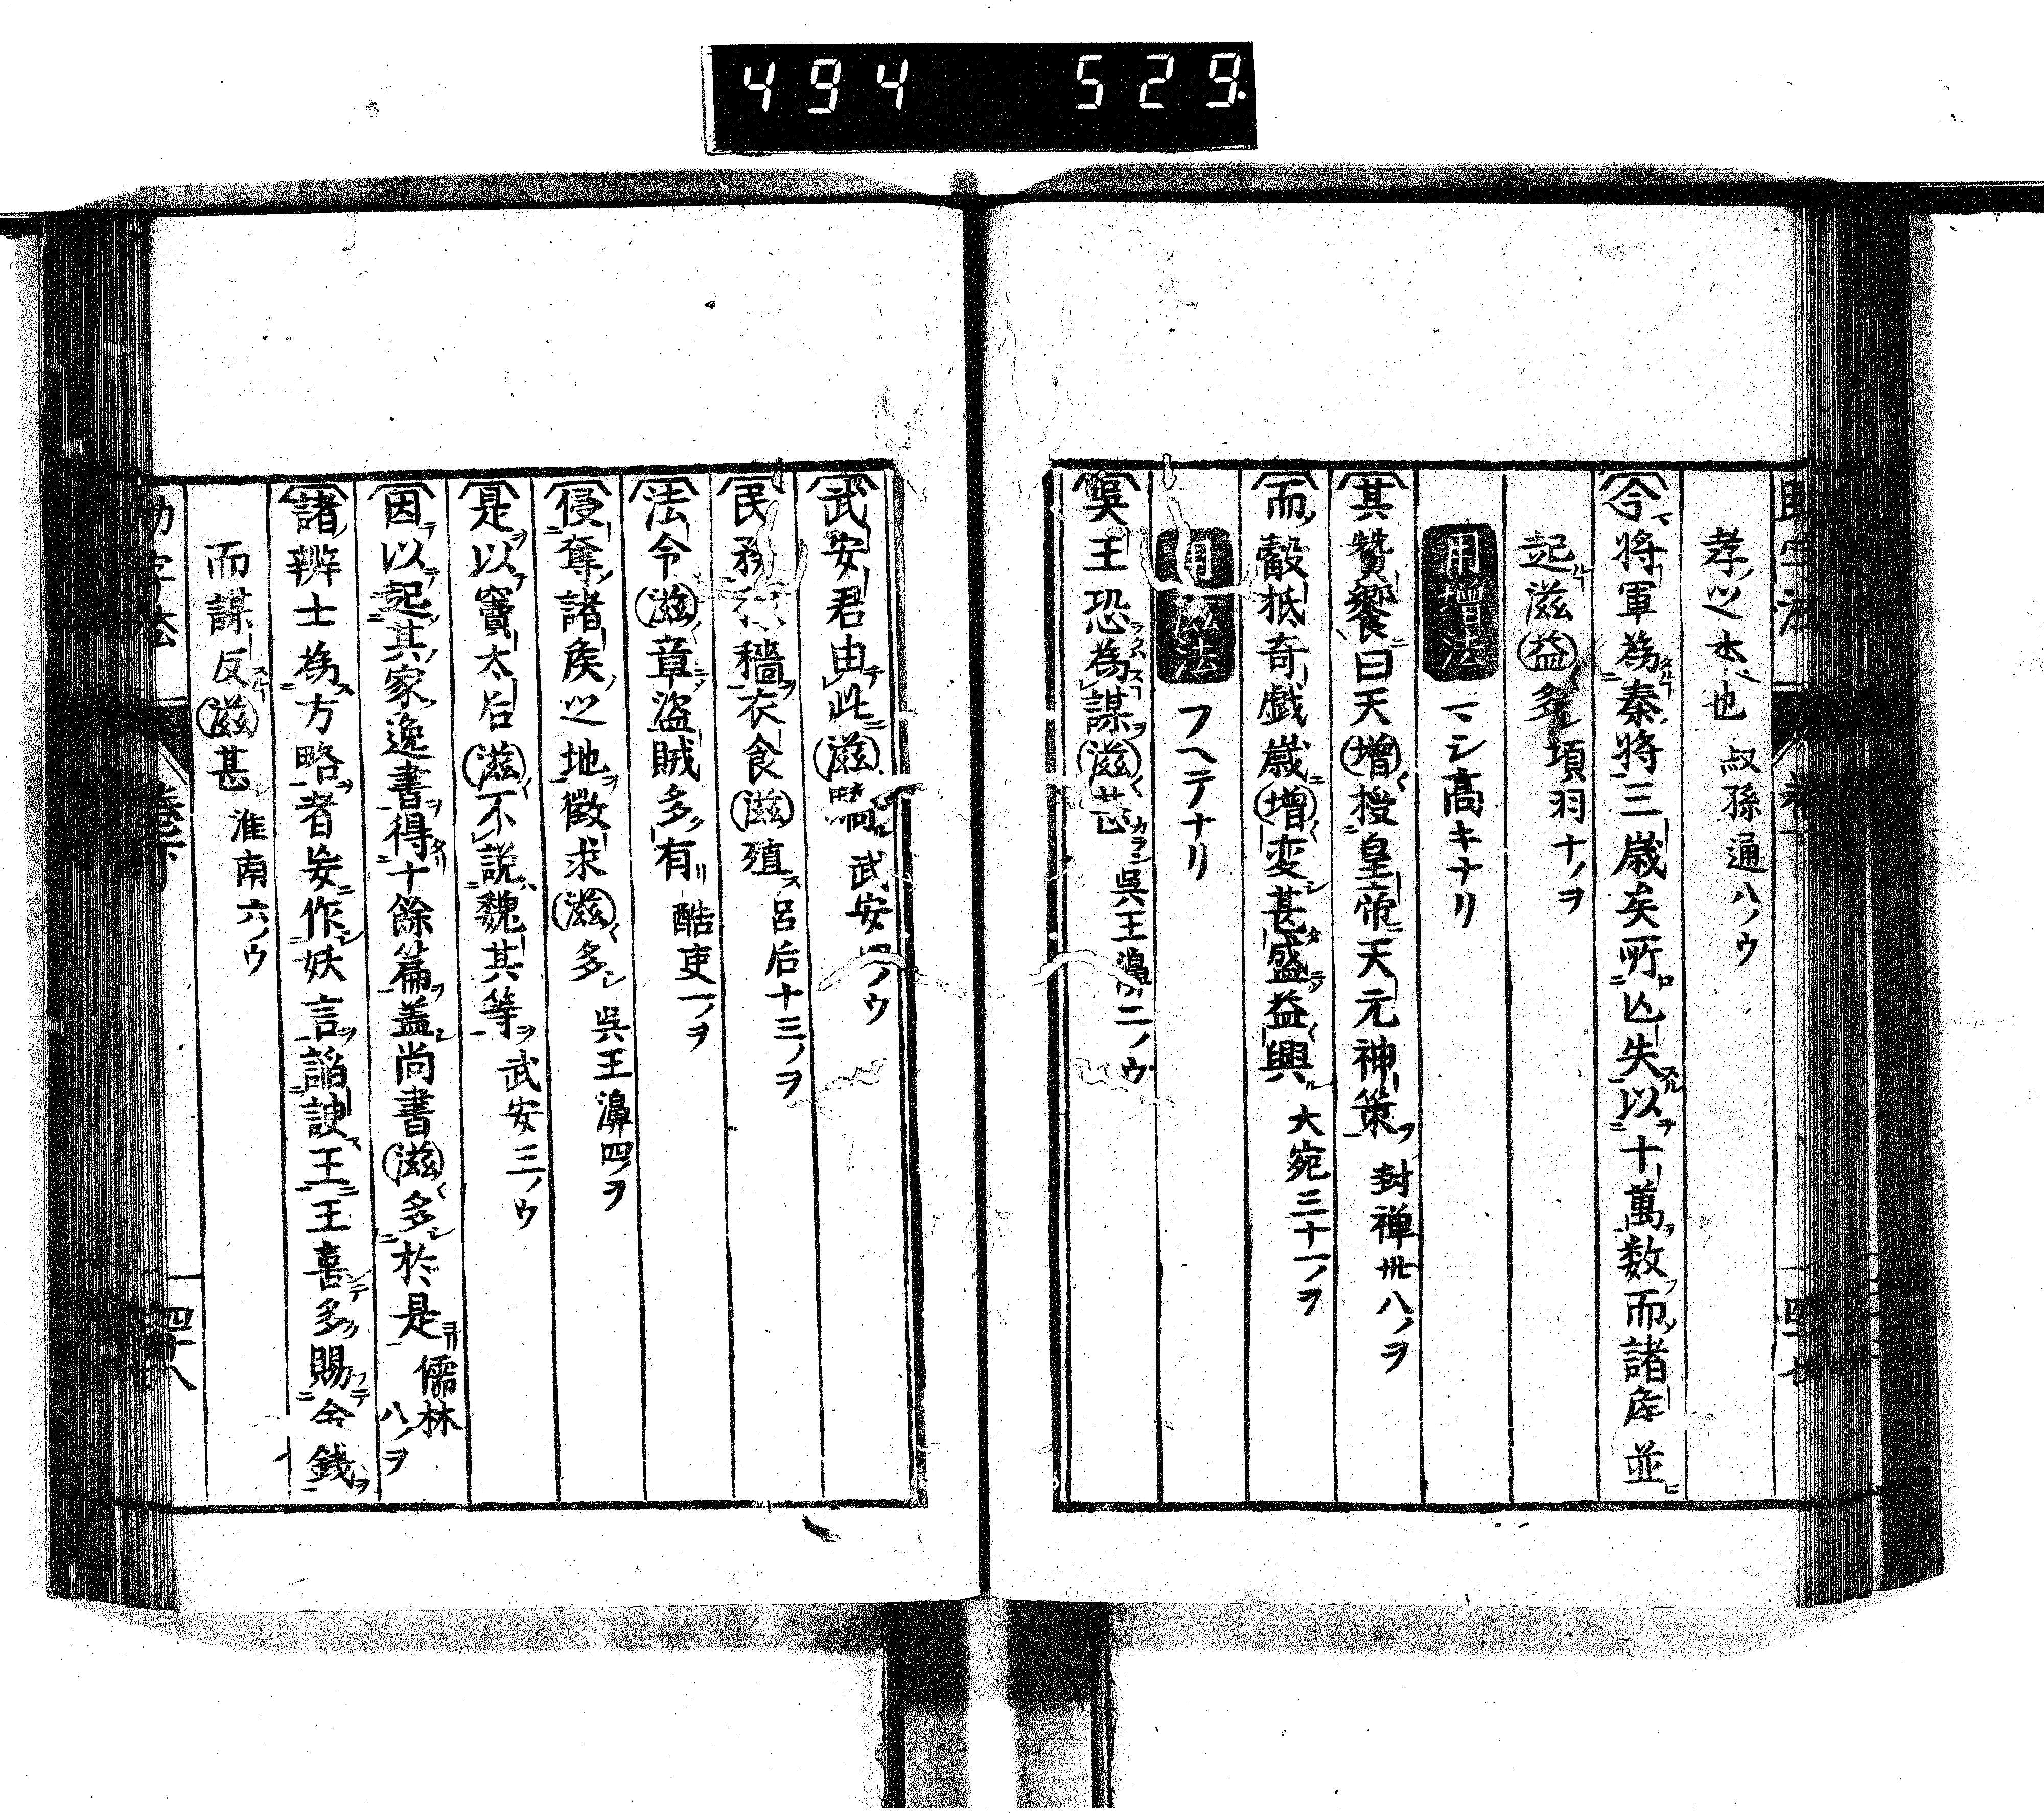 494 529
孝之本也 叔孫通八ノウ
今將軍為秦將三歳矣所亡失以十萬数而諸侯並
起滋益多 項羽十ノヲ
用增法 マシ髙キナリ
其贊饗曰天增授皇帝天元神策 封禅卅八ノヲ
而觳抵奇戯歳增変甚盛益興 大宛三十一ノヲ
用滋法 フヘテナリ
吳王恐為謀滋甚 吳王濞二ノウ
武安君由此滋驕 武安ノウ
民務稼穡衣食滋殖 呂后十三ノヲ
法令滋章盗賊多有 酷吏一ノヲ
侵奪諸侯之地徴求滋多 吳王濞四ノヲ
是以竇太后滋不說魏其等 武安三ノウ
因以起其家逸書得十餘篇盖尚書滋多於是 儒林八ノヲ
諸辨士為方略者妄作妖言諂諛王王喜多賜金錢
而謀反滋甚 淮南六ノウ
四十八